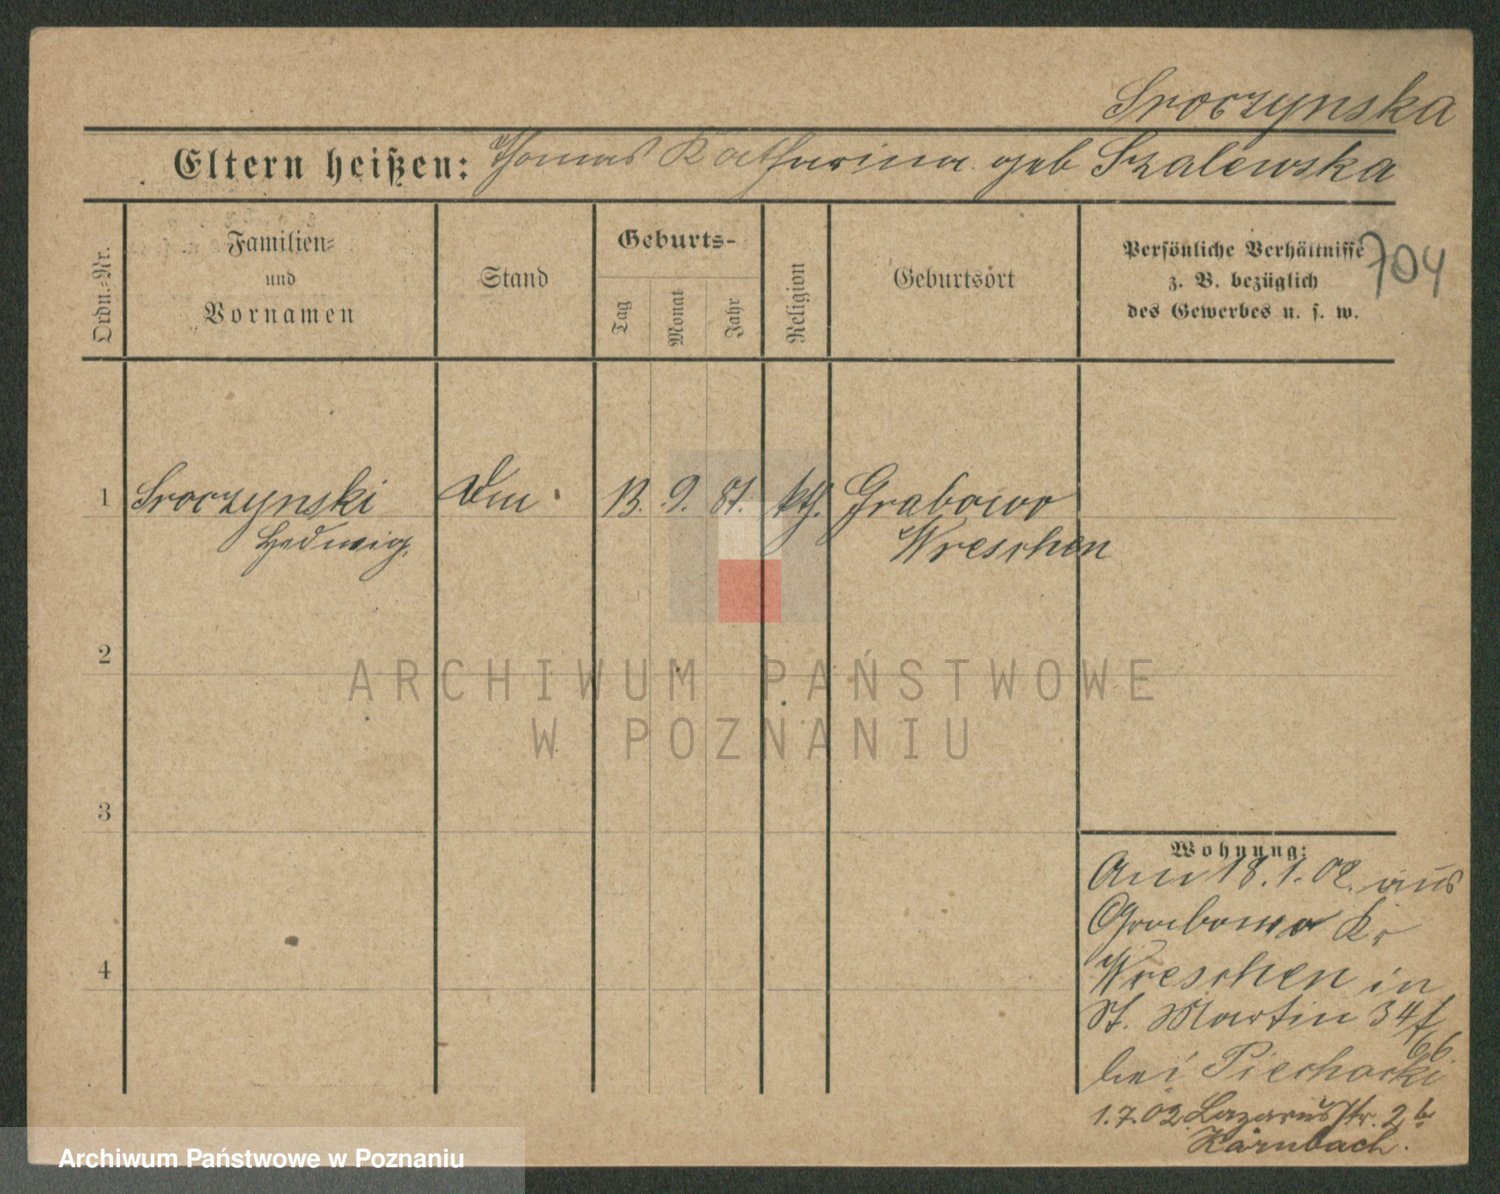 Sroczynska
Eltern heißen: Thomas Katharina geb Szalewska
Ordn.-Nr.
Familien-
und
Vornamen
Stand
Geburts-
Tag
Monat
Jahr
Religion
Geburtsort
Persönliche Verhältnisse
z. B. bezüglich
des Gewerbes u. s. w.
704
1 Sroczynski 13. 9. 81. kth. Grabowo
Hedwig. Wreschen
2
3
4
ARCHIWUM PAŃSTWOWE
W POZNANIU
Wohnung:
Am 18.1.02. aus
Grabowo Kr
Wreschen in
St. Martin 34
bei
1.7.02. Lazarusstr. 2b
Kärnbach.
Archiwum Państwowe w Poznaniu